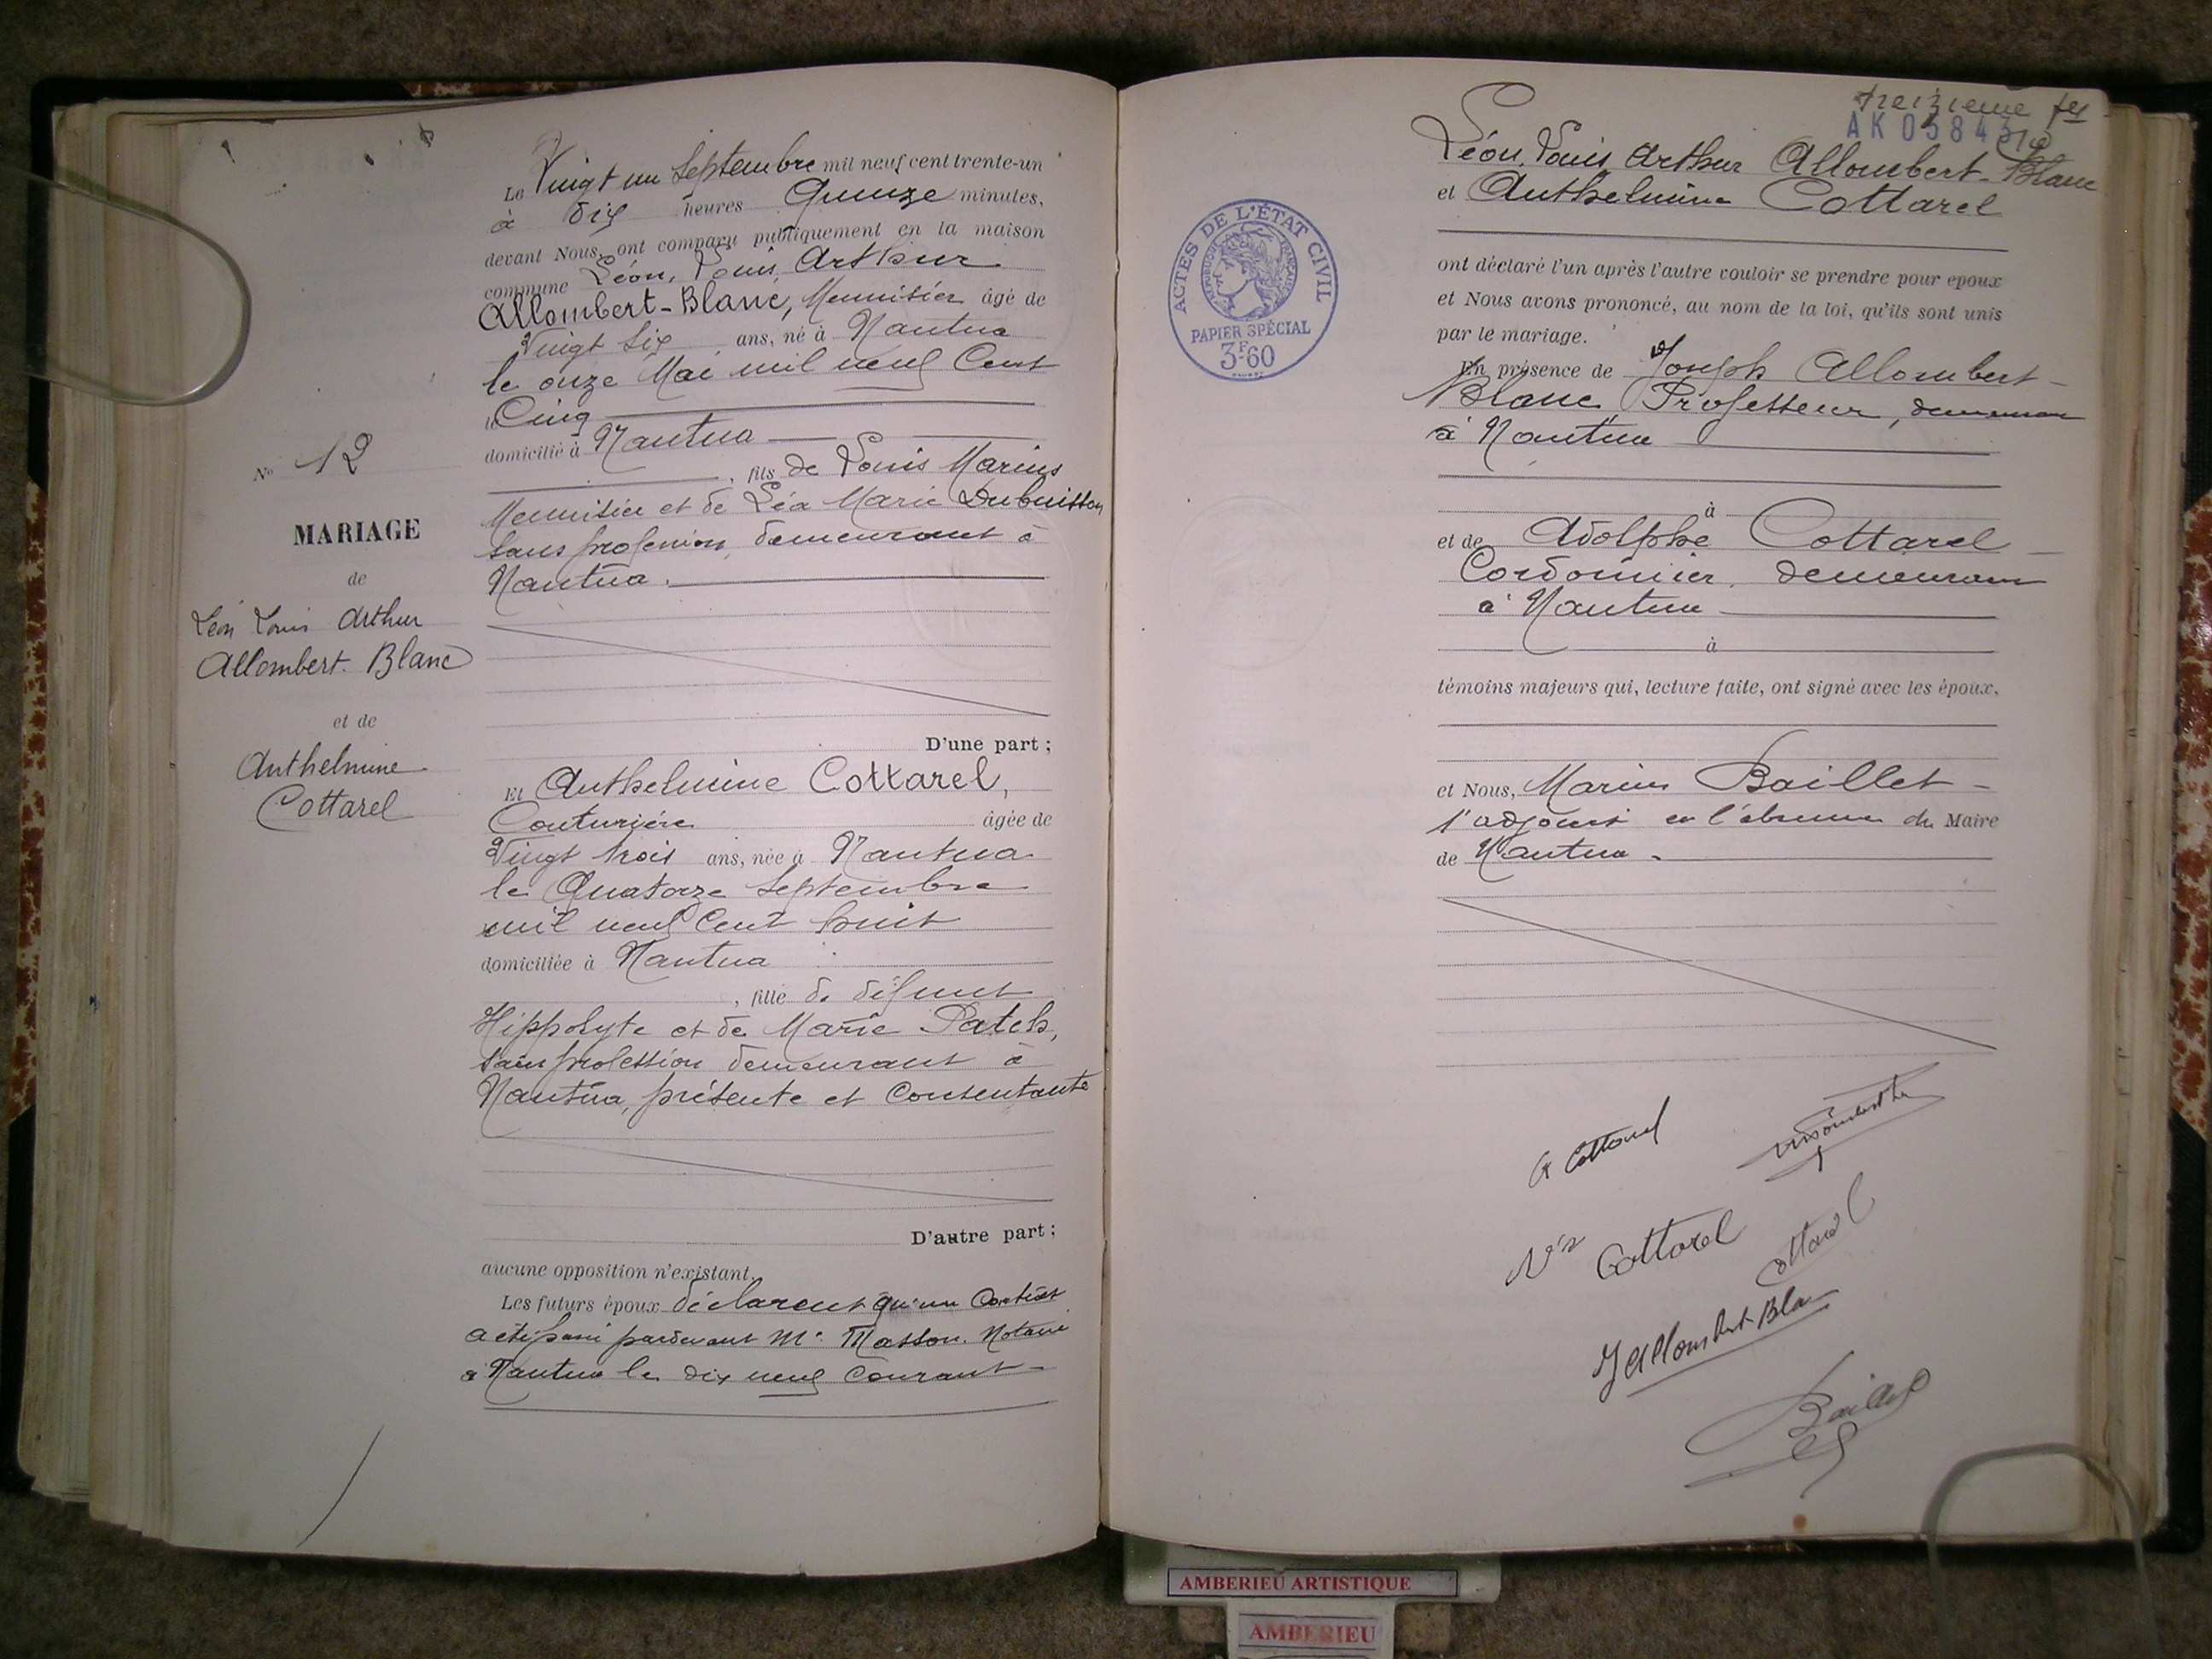 Le Vingt un Septembre mil neuf cent trente-un
à Dix heures Quinze minutes,
devant Nous, ont comparu publiquement en la maison
commune Léon, Louis, Arthur
Allombert-Blanc, Menuisier âgé de
Vingt Six ans, né à Nantua
le onze Mai mil neuf Cent
Cinq
domicilié à Nantua
, fils de Louis Marius
Menuisier et de Léa Marie Dubuisson
sans profession, demeurant à
Nantua.
D'une part ;
Et Anthelmine Cottarel,
Couturière âgée de
Vingt trois ans, née à Nantua
le Quatorze Septembre
mil neuf Cent huit
domiciliée à Nantua
, fille de défunt
Hippolyte et de Marie Patch,
sans profession demeurant à
Nantua, présente et Consentante
D'autre part ;
aucune opposition n'existant.
Les futurs époux déclarent qu'un Contrat
a été passé pardevant Me Masson, Notaire
à Nantua le dix neuf Courant
No 12
MARIAGE
de
Léon Louis Arthur
Allombert-Blanc
et de
Anthelmine
Cottarel
treizième
AK 05843
Léon, Louis Arthur Allombert-Blanc
et Anthelmine Cottarel
ont déclaré l'un après l'autre vouloir se prendre pour epoux
et Nous avons prononcé, au nom de la loi, qu'ils sont unis
par le mariage.
En présence de Joseph Allombert-
Blanc, Professeur, demeurant
à Nantua
à
et de Adolphe Cottarel
Cordonnier, demeurant
à Nantua
à
témoins majeurs qui, lecture faite, ont signé avec les époux,
et Nous, Marius Baillet
l'adjoint en l'absence du Maire
de Nantua.
ACTES DE L'ÉTAT CIVIL
RÉPUBLIQUE FRANÇAISE
PAPIER SPÉCIAL
3F60
A Cottarel
Vve Cottarel
Cottarel
J Allombert-Blanc
Baillet
AMBERIEU ARTISTIQUE
AMBERIEU